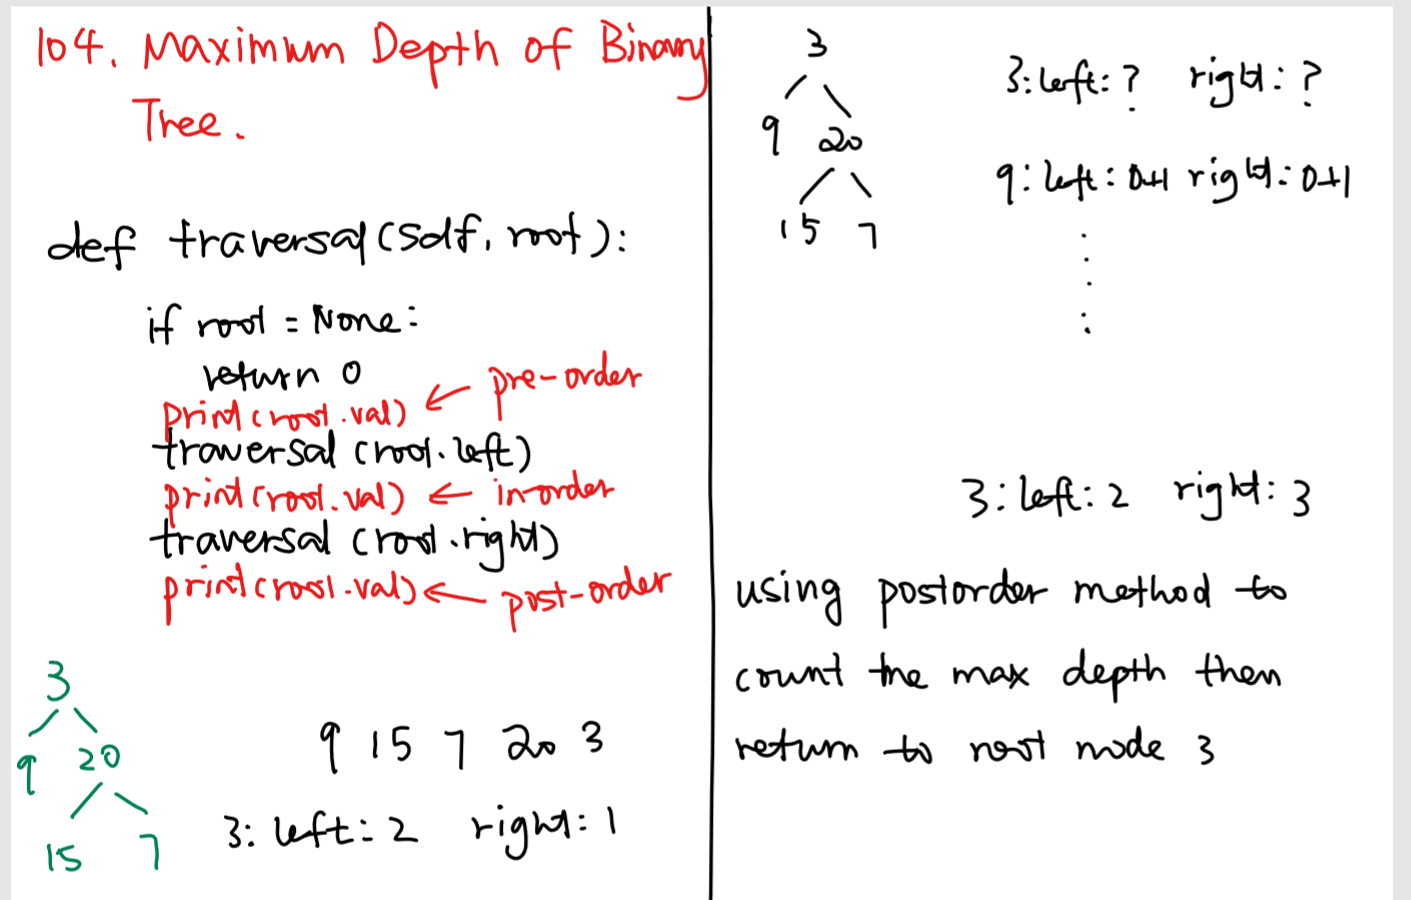 104. Maximum Depth of Binary
Tree.
def traversal(self, root):
if root = None:
return 0
print(root.val) ← pre-order
traversal (root.left)
print(root.val) ← in-order
traversal (root.right)
print(root.val) ← post-order
3
9 20
15 7
9 15 7 20 3
3: left: 2 right: 1
3
9 20
15 7
3: left: ? right: ?
9: left: 0+1 right: 0+1
3: left: 2 right: 3
using postorder method to
count the max depth then
return to root node 3